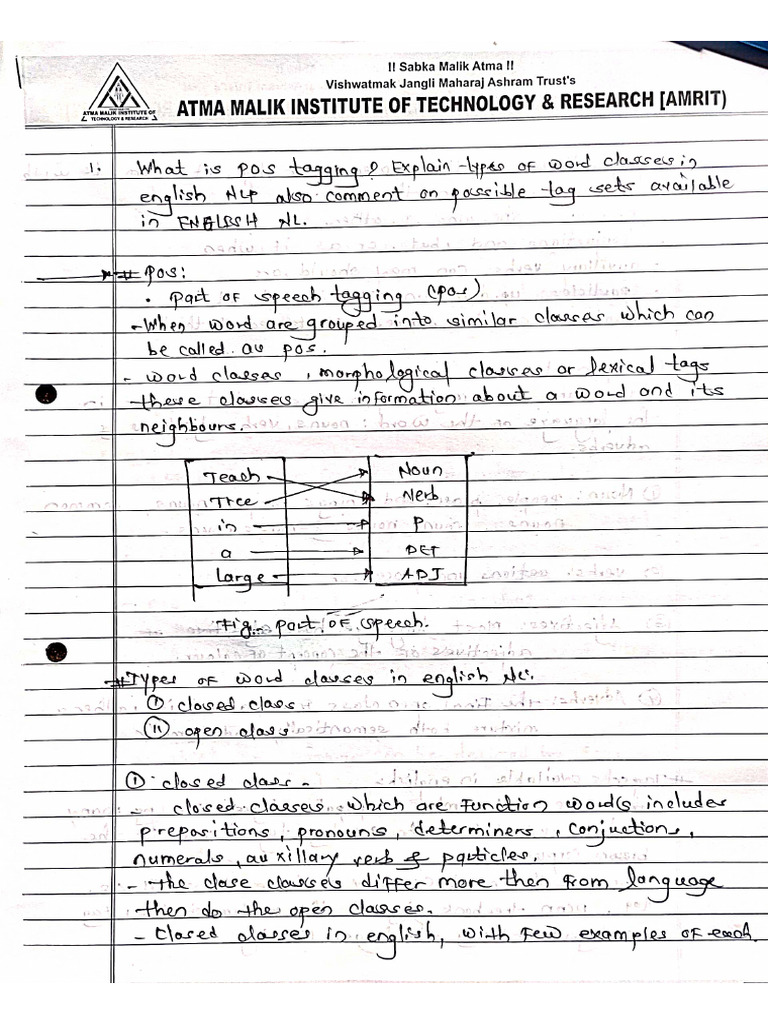 !! Sabka Malik Atma !!
Vishwatmak Jangli Maharaj Ashram Trust's
ATMA MALIK INSTITUTE OF TECHNOLOGY & RESEARCH [AMRIT)
ATMA MALIK INSTITUTE OF
TECHNOLOGY & RESEARCH
1. What is pos tagging? Explain types of word classes in
english NLP also comment on possible tag sets available
in ENGLISH NL.
# POS:
• Part of speech tagging (POS)
- When word are grouped into similar classes which can
be called au pos.
- word classes, morphological classes or lexical tags
these classes give information about a word and its
neighbours.
Teach Noun
Tree Verb
in P
a DET
Large ADJ
Fig. part of speech.
# Types of word classes in english NL:
(I) closed class
(II) open class
(I) closed class -
- closed classes which are function word(s includes
prepositions, pronouns, determiners, conjuctions,
numerals, auxillary verb & particles.
- the close classes differ more then from language
then do the open classes.
- closed classes in english, with few examples of each.